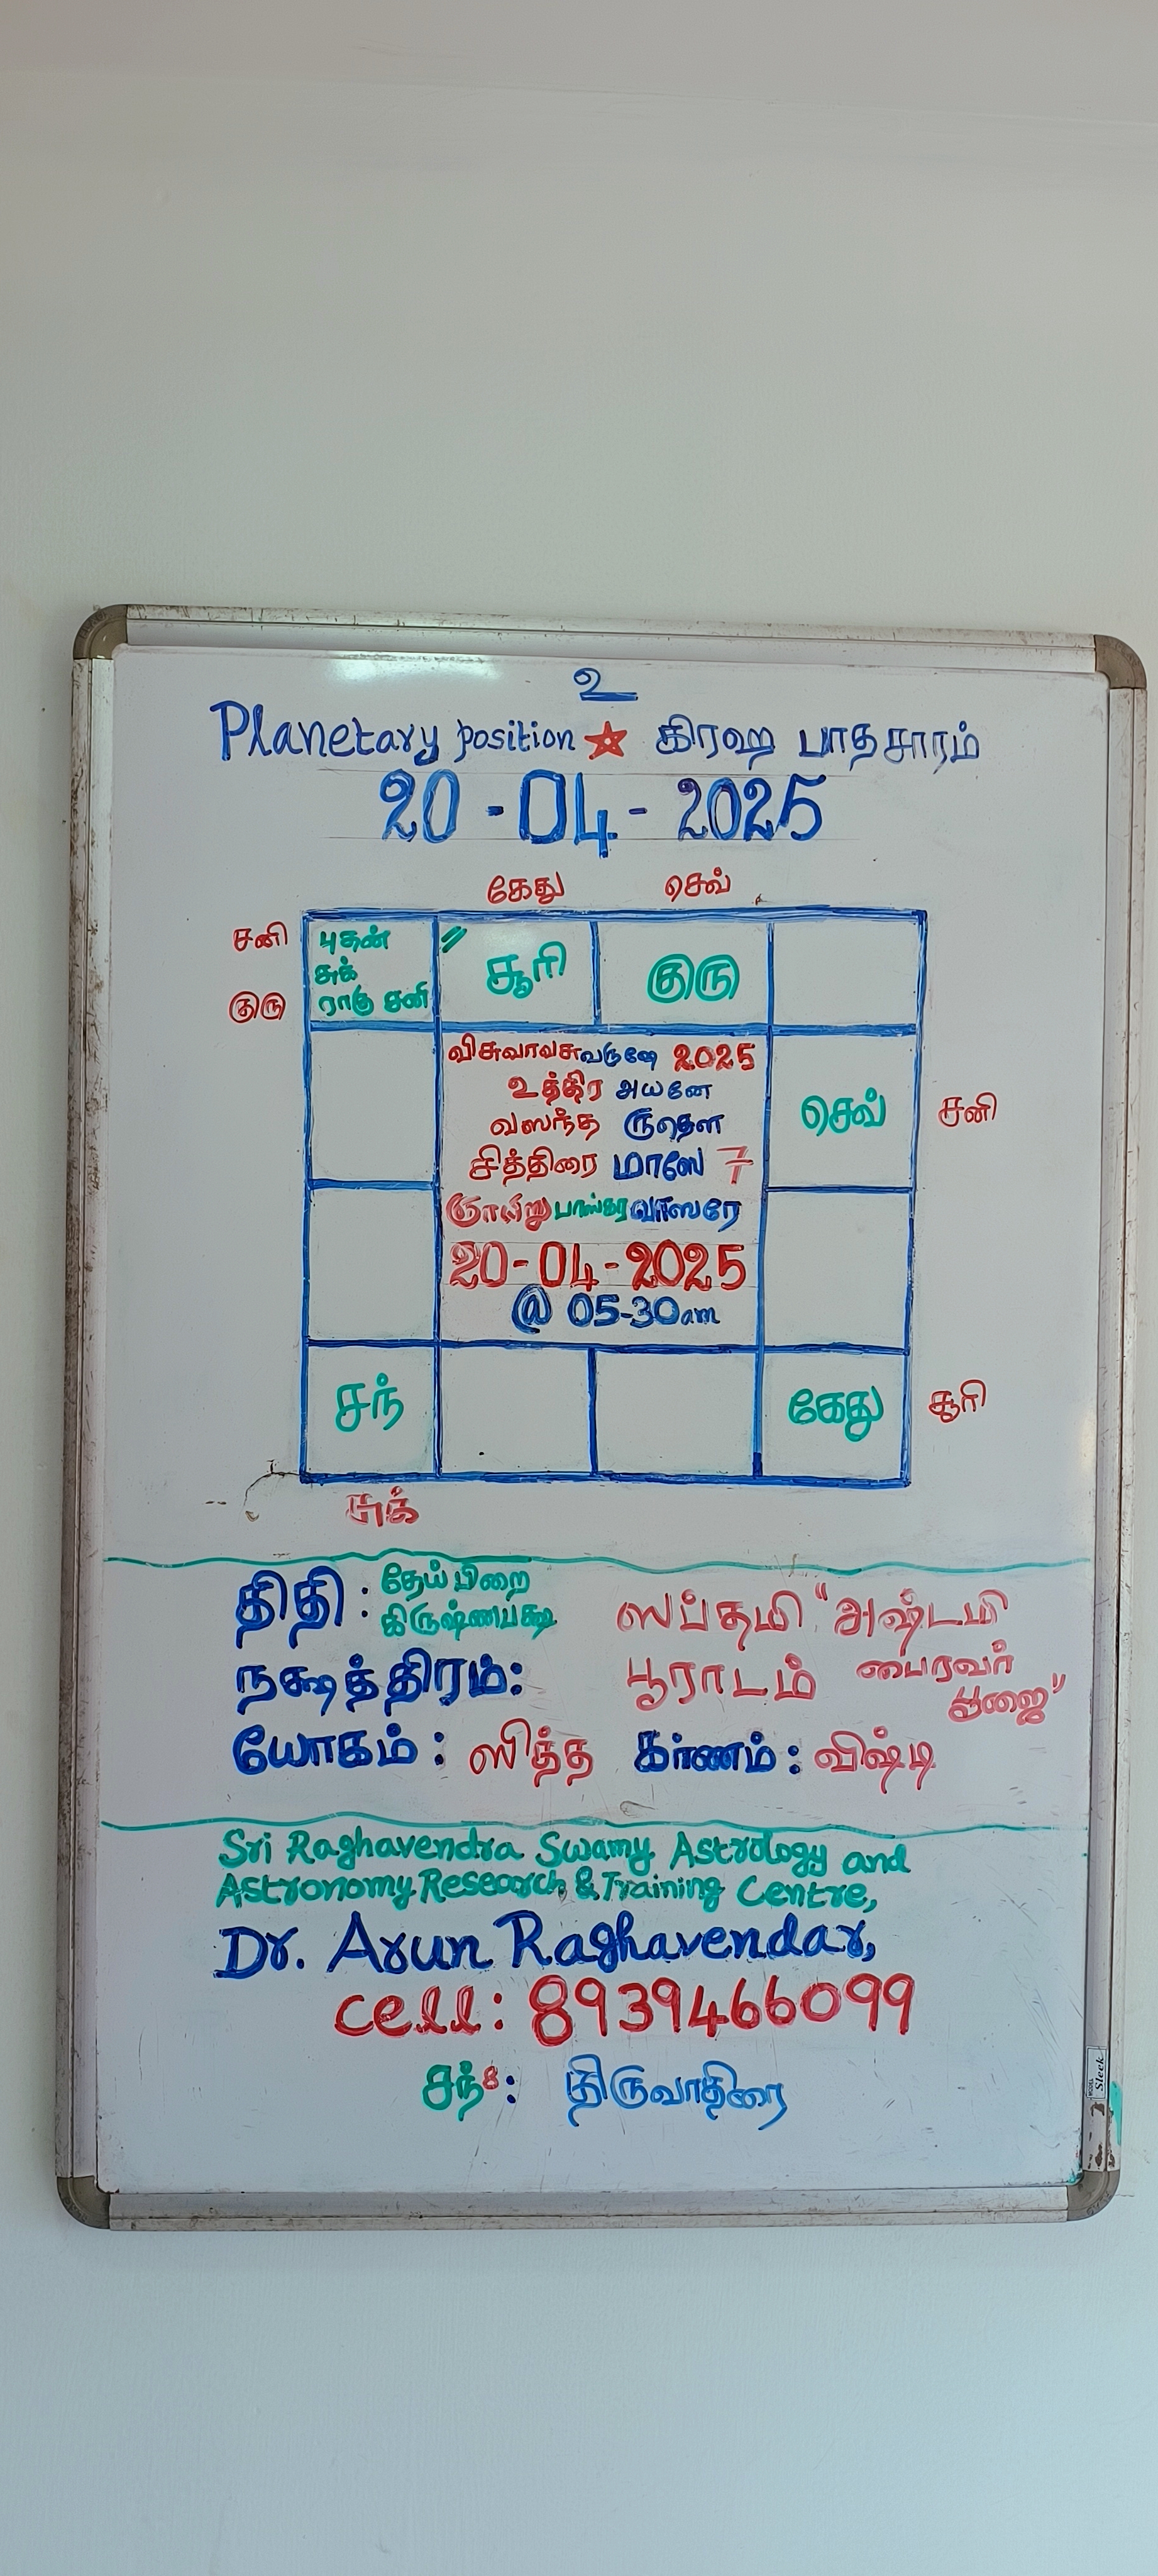 உ
Planetary position ★ கிரஹ பாதசாரம்
20-04-2025
கேது செவ்
சனி
குரு
புதன்
சுக்
ராகு சனி
சூரி
குரு
விசுவாவசுவருஷே 2025
உத்திர அயனே
வஸந்த ருதௌ
சித்திரை மாஸே 7
ஞாயிறு பாஸ்கர வாஸரே
20-04-2025
@ 05-30am
செவ்
சனி
சந்
கேது
சூரி
சுக்
திதி : தேய்பிறை
கிருஷ்ணபக்ஷ ஸப்தமி "அஷ்டமி
நக்ஷத்திரம்: பூராடம் பைரவர்
பூஜை"
யோகம் : ஸித்த கர்ணம் : விஷ்டி
Sri Raghavendra Swamy Astrology and
Astronomy Research & Training Centre,
Dr. Arun Raghavendar,
cell: 8939466099
சந்8: திருவாதிரை
Sleek